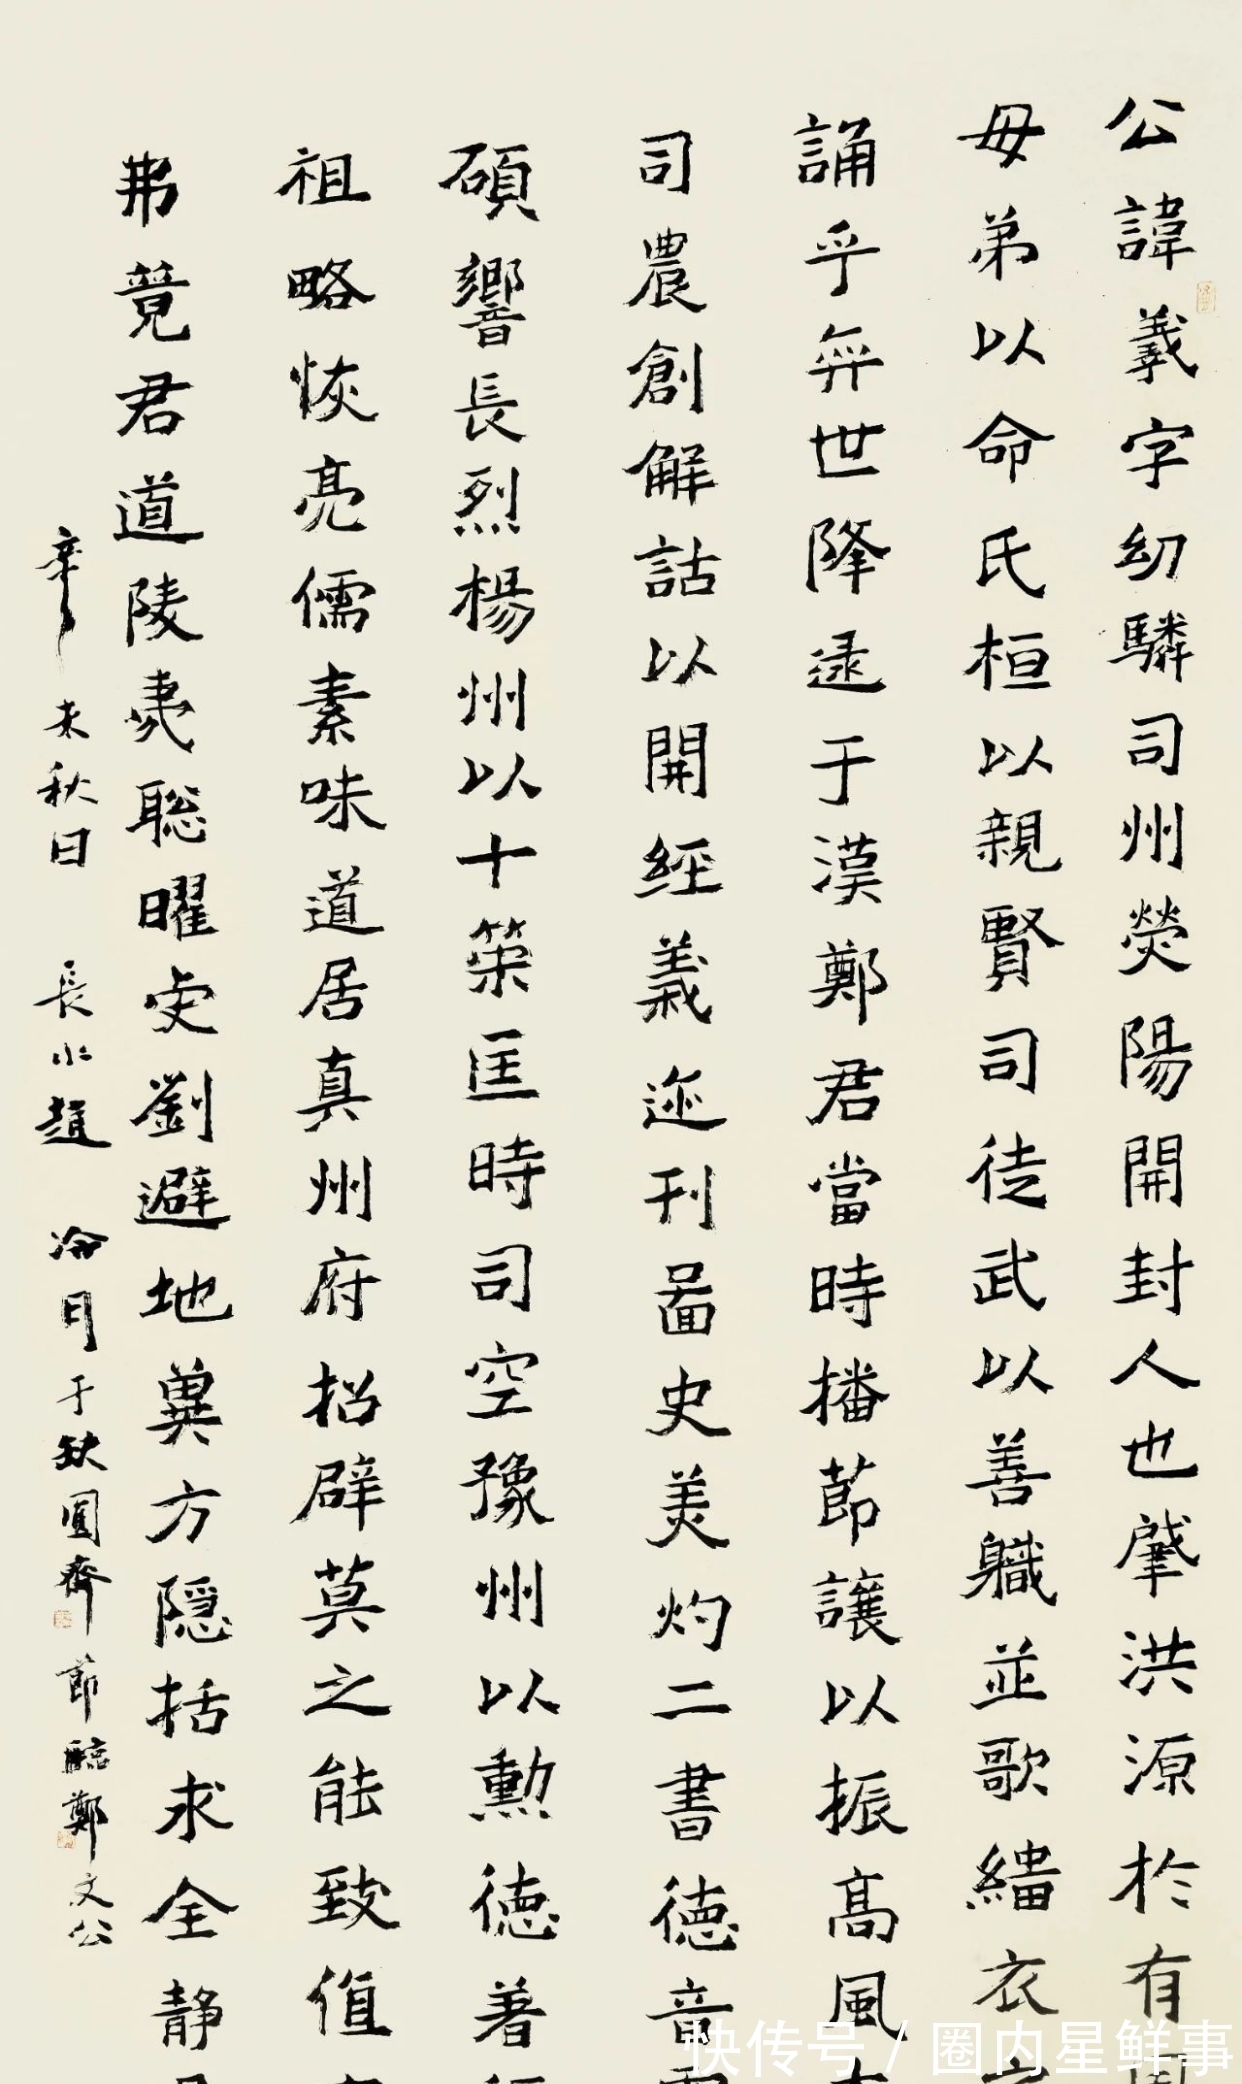 公諱羲字幼驎司州熒陽開封人也肇洪源於有周
母弟以命氏桓以親賢司徒武以善職並歌緇衣
誦乎弈世降逯于漢鄭君當時播節讓以振高風
司農創解詁以開經義迹刊圖史美灼二書德音
碩響長烈楊州以十策匡時司空豫州以勲德著
祖略恢亮儒素味道居真州府招辟莫之能致值
弗竟君道陵夷聡曜虔劉避地兾方隱括求全静
辛未秋日 長水趙 冷月于缺圓齋節臨鄭文公
快传号/圈内星鲜事